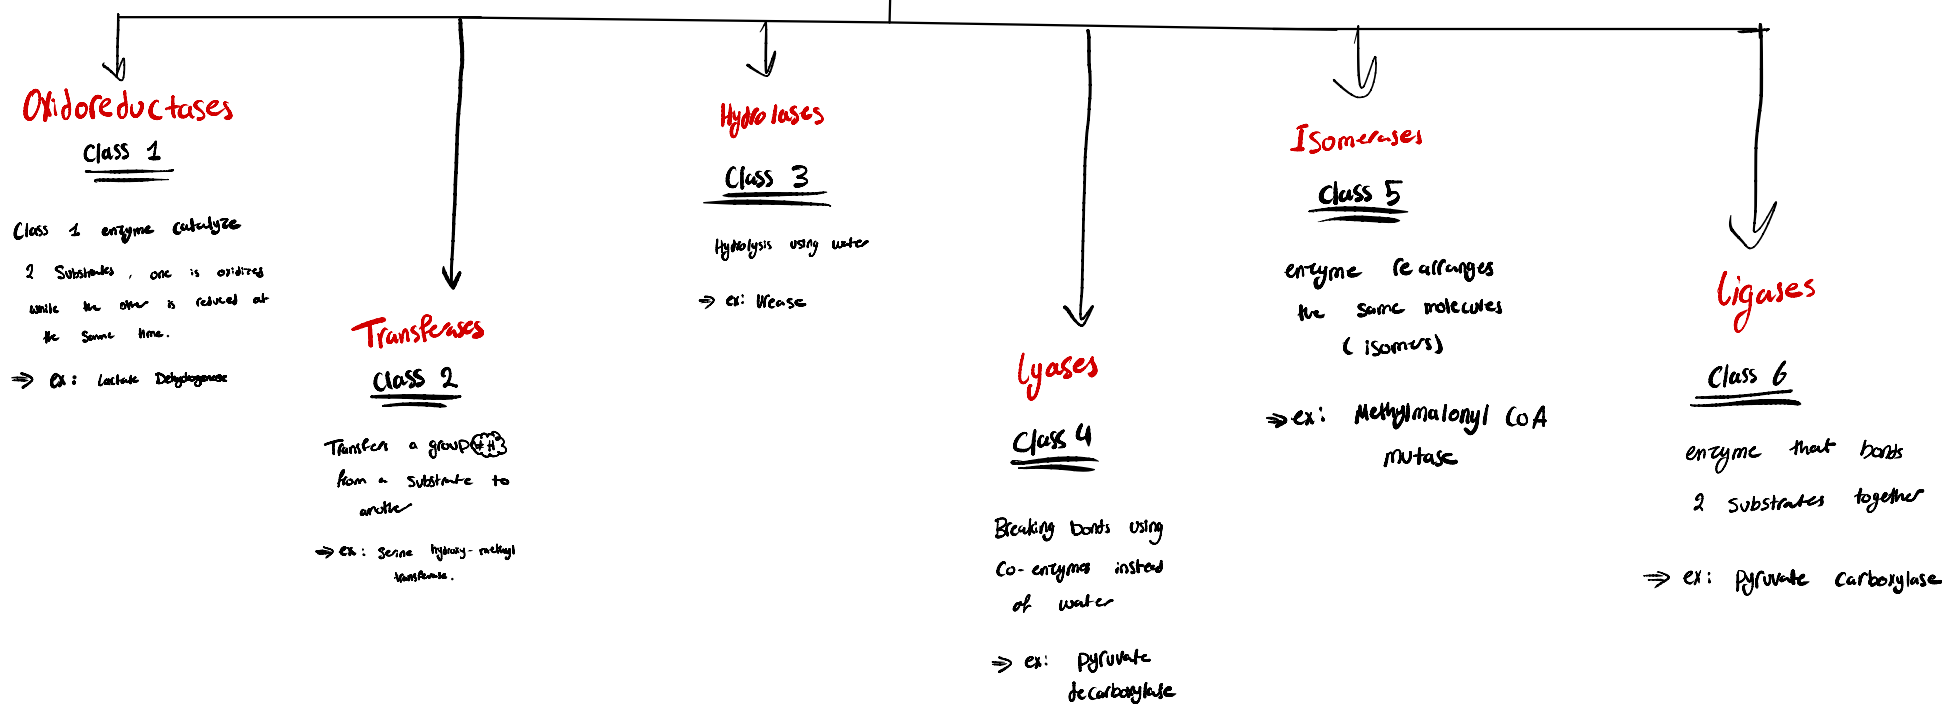 Oxidoreductases
Class 1
Class 1 enzyme catalyze
2 Substrates, one is oxidized
while the other is reduced at
the same time.
⇒ ex: Lactate Dehydrogenase
Transferases
Class 2
Transfers a group ≠H
from a substrate to
another
⇒ ex: Serine hydroxy-methyl
transferase.
Hydrolases
Class 3
Hydrolysis using water
⇒ ex: Urease
Lyases
Class 4
Breaking bonds using
Co-enzymes instead
of water
⇒ ex: pyruvate
decarboxylase
Isomerases
Class 5
enzyme rearranges
the same molecules
(isomers)
⇒ ex: Methylmalonyl CoA
mutase
Ligases
Class 6
enzyme that bonds
2 substrates together
⇒ ex: pyruvate carboxylase